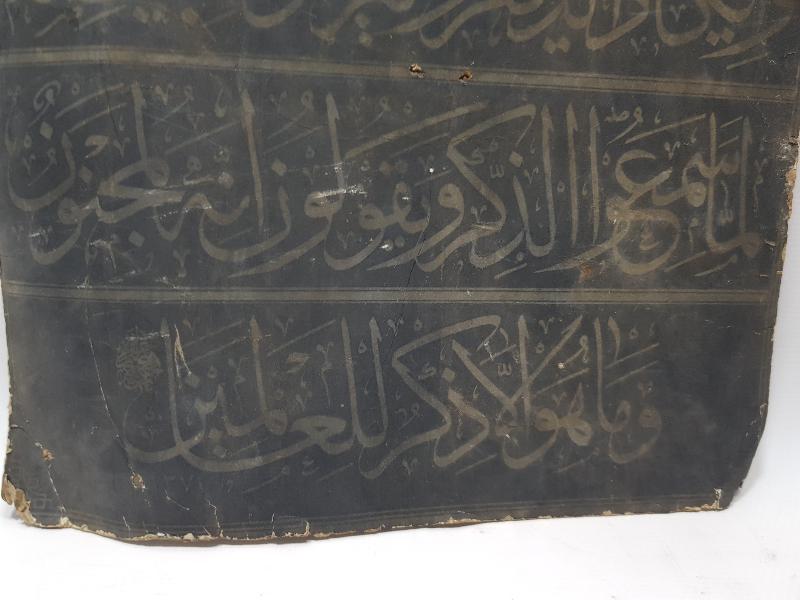 لما سمعوا الذكر ويقولون انه لمجنون
وما هو الا ذكر للعالمين